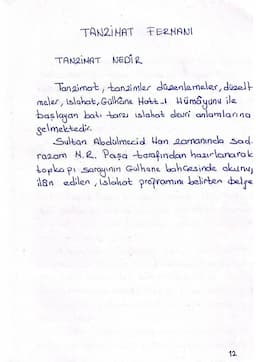 TANZİMAT FERMANI
TANZİMAT NEDİR
Tanzimat, tanzimler düzenlemeler, düzelt
meler, ıslahat, Gülhâne Hatt-ı Hümâyunu ile
başlayan batı tarzı ıslahat devri anlamlarına
gelmektedir.
Sultan Abdülmecid Han zamanında sad.
razam M.R. Paşa tarafından hazırlanarak
topkapı sarayının Gülhane bahçesinde okunup
ilân edilen, ıslahat programını belirten belge
12